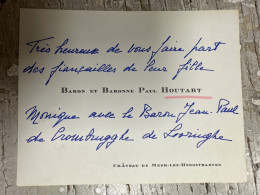 Très heureux de vous faire part
des fiançailles de leur fille
Baron et Baronne Paul Houtart
Monique avec le Baron Jean-Paul
de Crombrugghe de Looringhe
Château de Meer-lez-Hoogstraeten